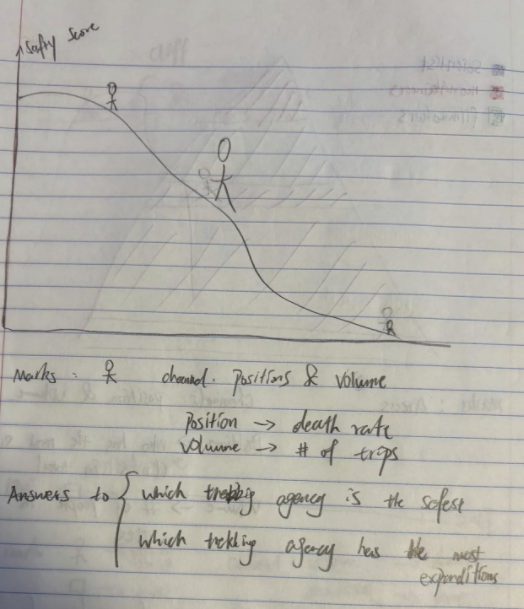 safty score
Marks : channel. positions & volume
position → death rate
volumne → # of trips
Answers to { which trekking agency is the safest
which trekking agency has the most
expanditions